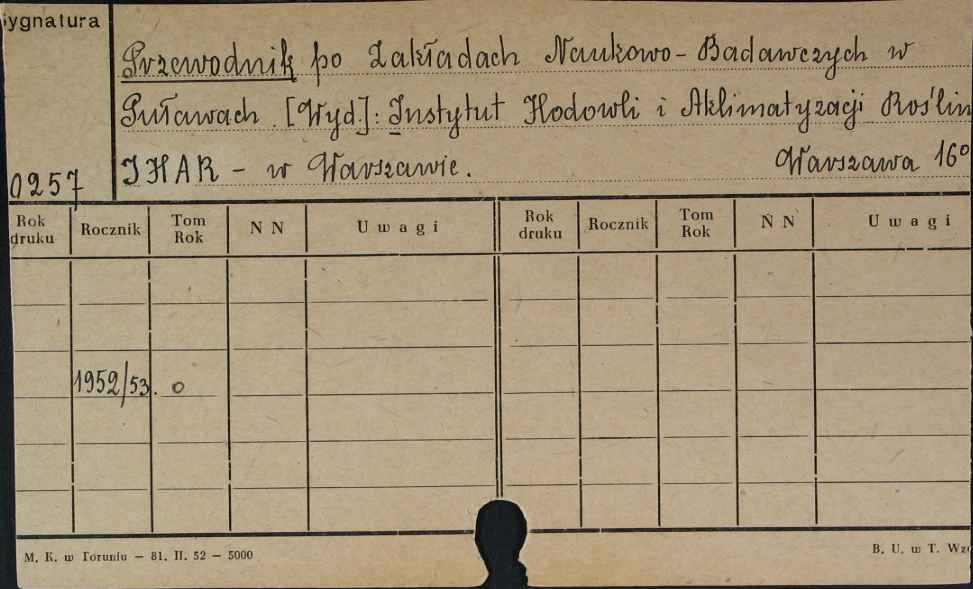 Sygnatura
Przewodnik po Zakładach Naukowo-Badawczych w
Puławach. [Wyd.]: Instytut Hodowli i Aklimatyzacji Roślin
IHAR - w Warszawie. Warszawa 16°
0257
Rok druku Rocznik Tom Rok N N Uwagi Rok druku Rocznik Tom Rok N N Uwagi
1952/53. o
M. K. w Toruniu — 81. II. 52 — 5000 B. U. w T.